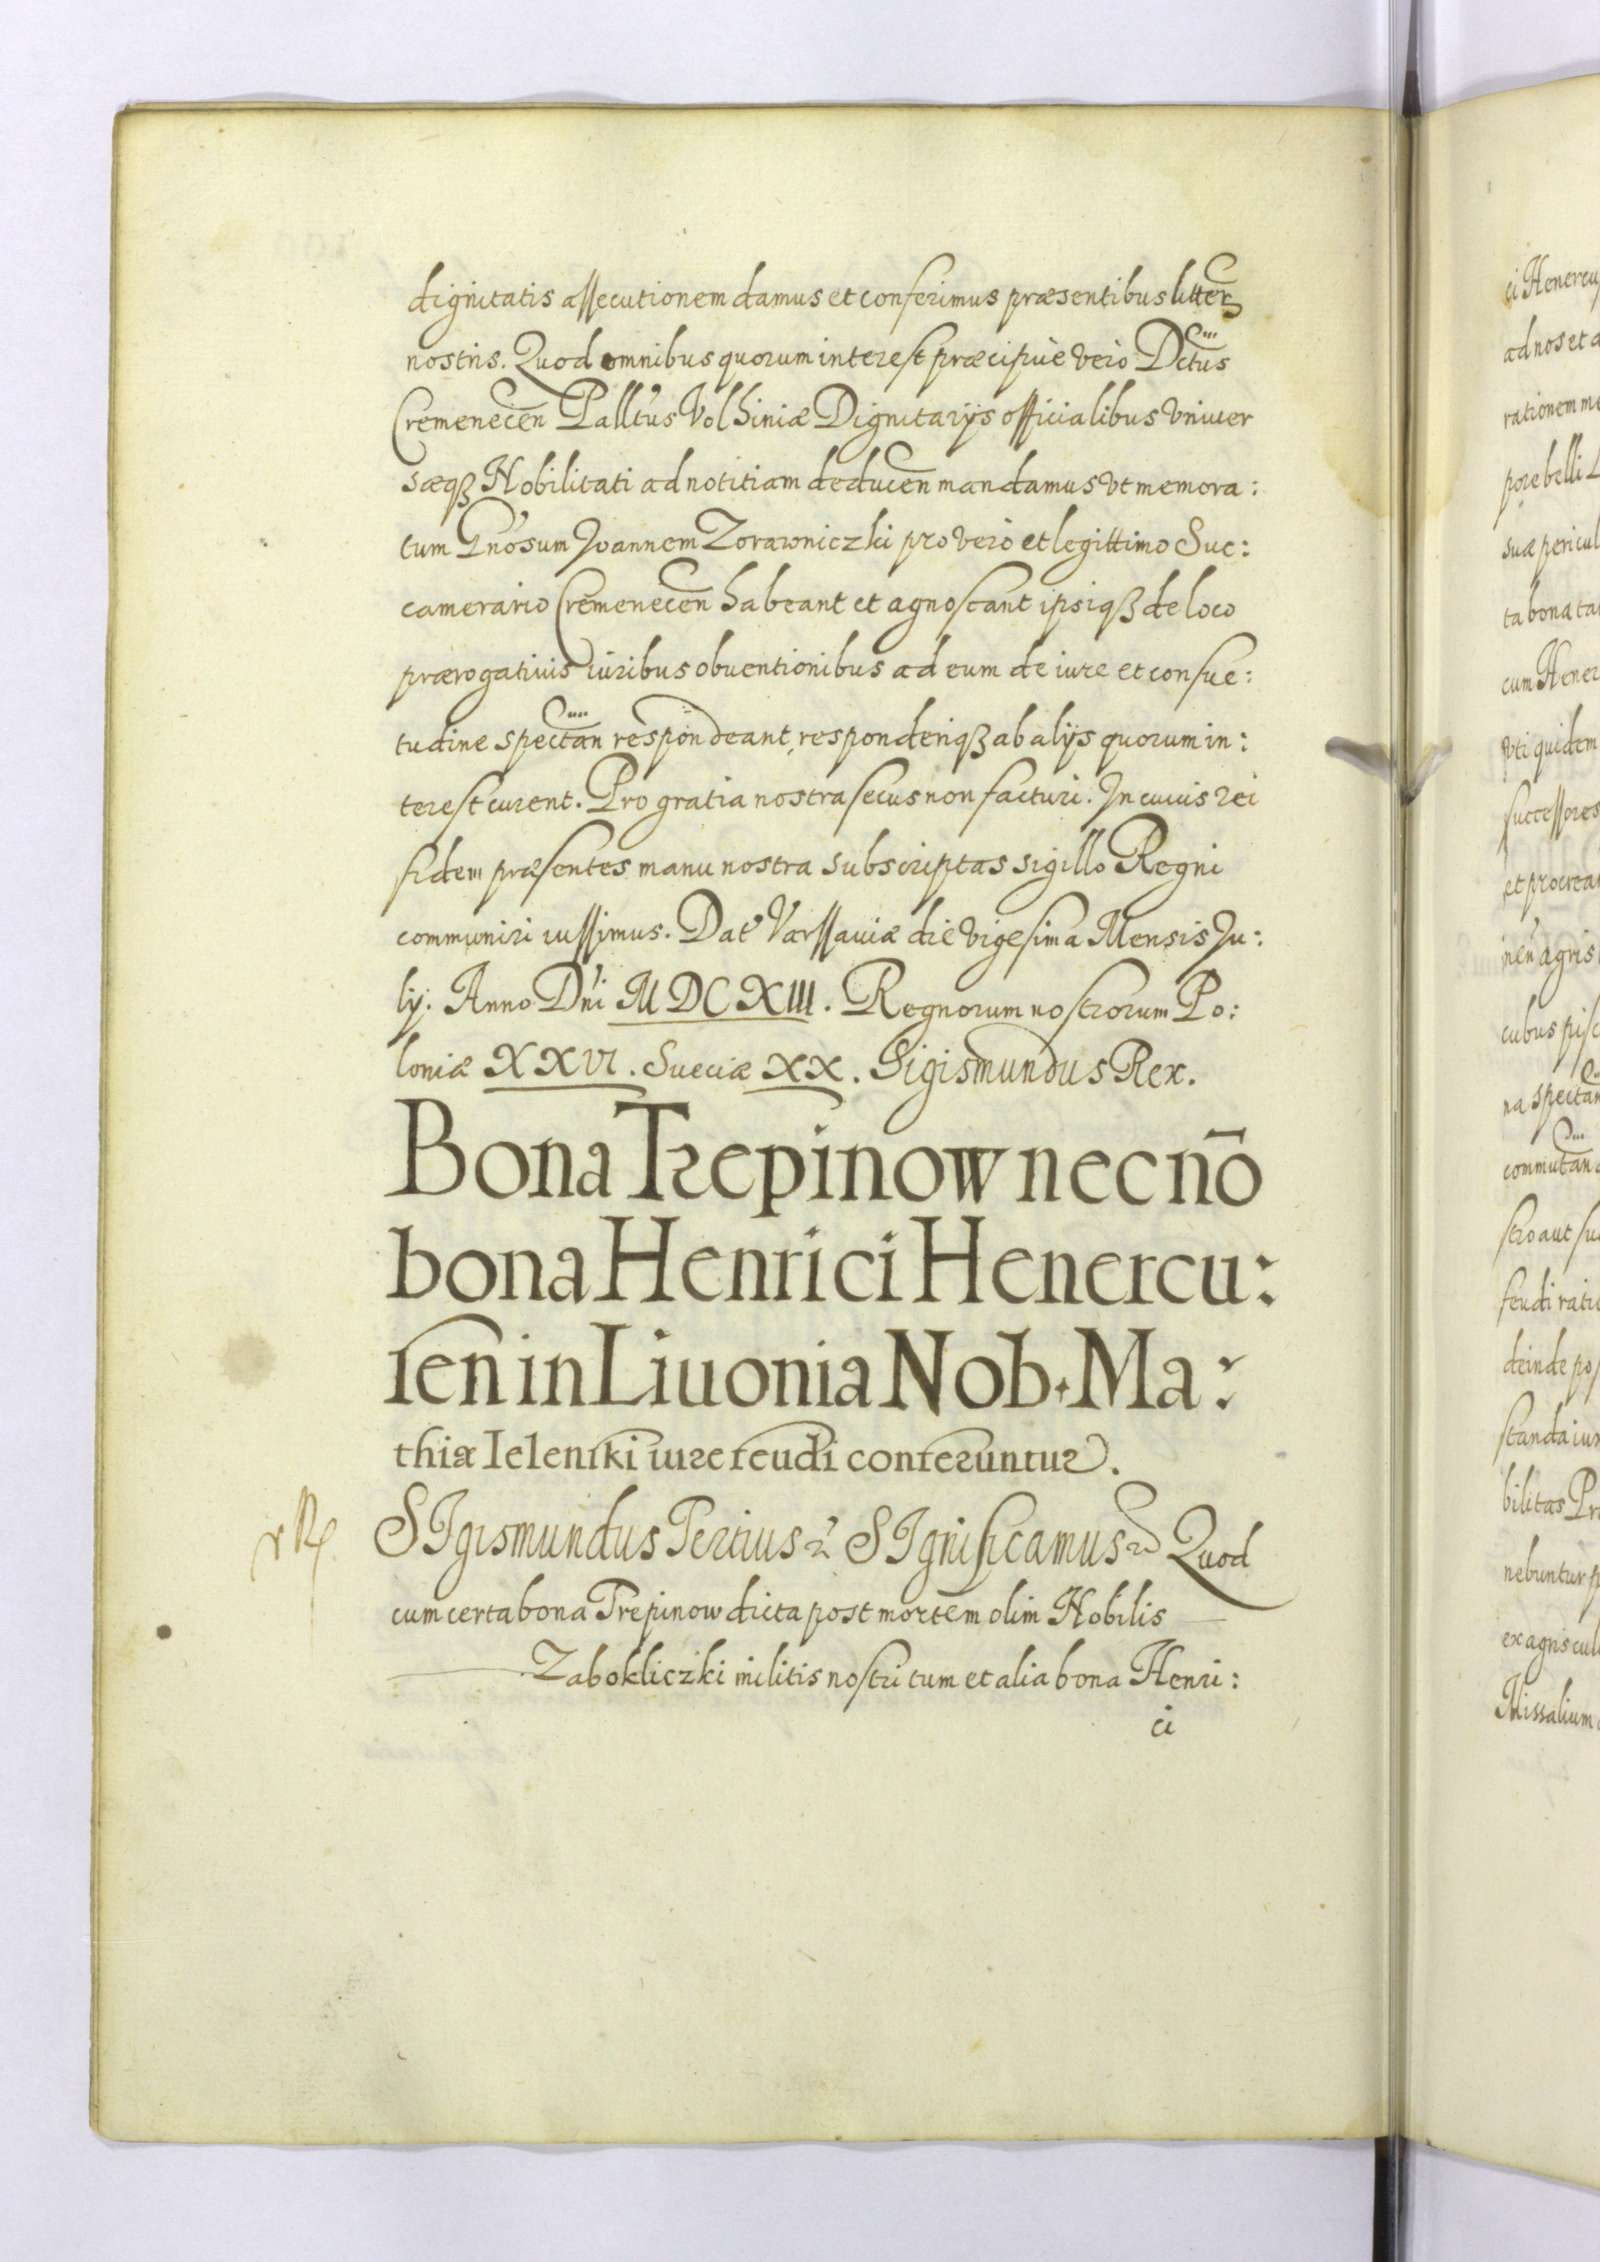 dignitatis assecutionem damus et conferimus præsentibus litter̃
nostris. Quod omnibus quorum interest præcipue vero Dctũs
Cremenecen̄ Palltus Volhiniæ Dignitarijs officialibus Vniuer
sæqꝫ Nobilitati ad notitiam deducen̄ mandamus vt memora:
tum Gnosum Joannem Zorawniczki pro vero et legittimo Suc:
camerario Cremenecen̄ habeant et agnoscant ipsiqꝫ de loco
prærogatiuis iuribus obuentionibus ad eum de iure et consue:
tudine spectan̄ respondeant, responderiqꝫ ab alijs quorum in:
terest curent. Pro gratia nostra secus non facturi. In cuius rei
fidem præsentes manu nostra subscriptas sigillo Regni
communiri iussimus. Dat Varssauiæ die vigesima Mensis Ju:
lij. Anno Dni MDCXIII. Regnorum nostrorum Po:
loniæ XXVI. Sueciæ XX. Sigismundus Rex.
Bona Trepinow necnō
bona Henrici Henercu:
ren in Liuonia Nob. Ma:
thiæ Ielenski iure feudi conferuntur.
SIgismundus Tertius SIgnificamus Quod
cum certa bona Trepinow dicta post mortem olim Nobilis
Zabokliczki militis nostri tum et alia bona Henri:
ci
ci Henercu
ad nos et a
rationem me
pore belli L
suæ pericul
ta bona ta
cum Hener
vti quidem
successores
et procrea
nen agris
cubus pisc
na spectan̄
commutan̄
stro aut su
feudi ratio
deinde pos
standa iur
bilitas Pr
nebuntur p
ex agris cul
Missalium